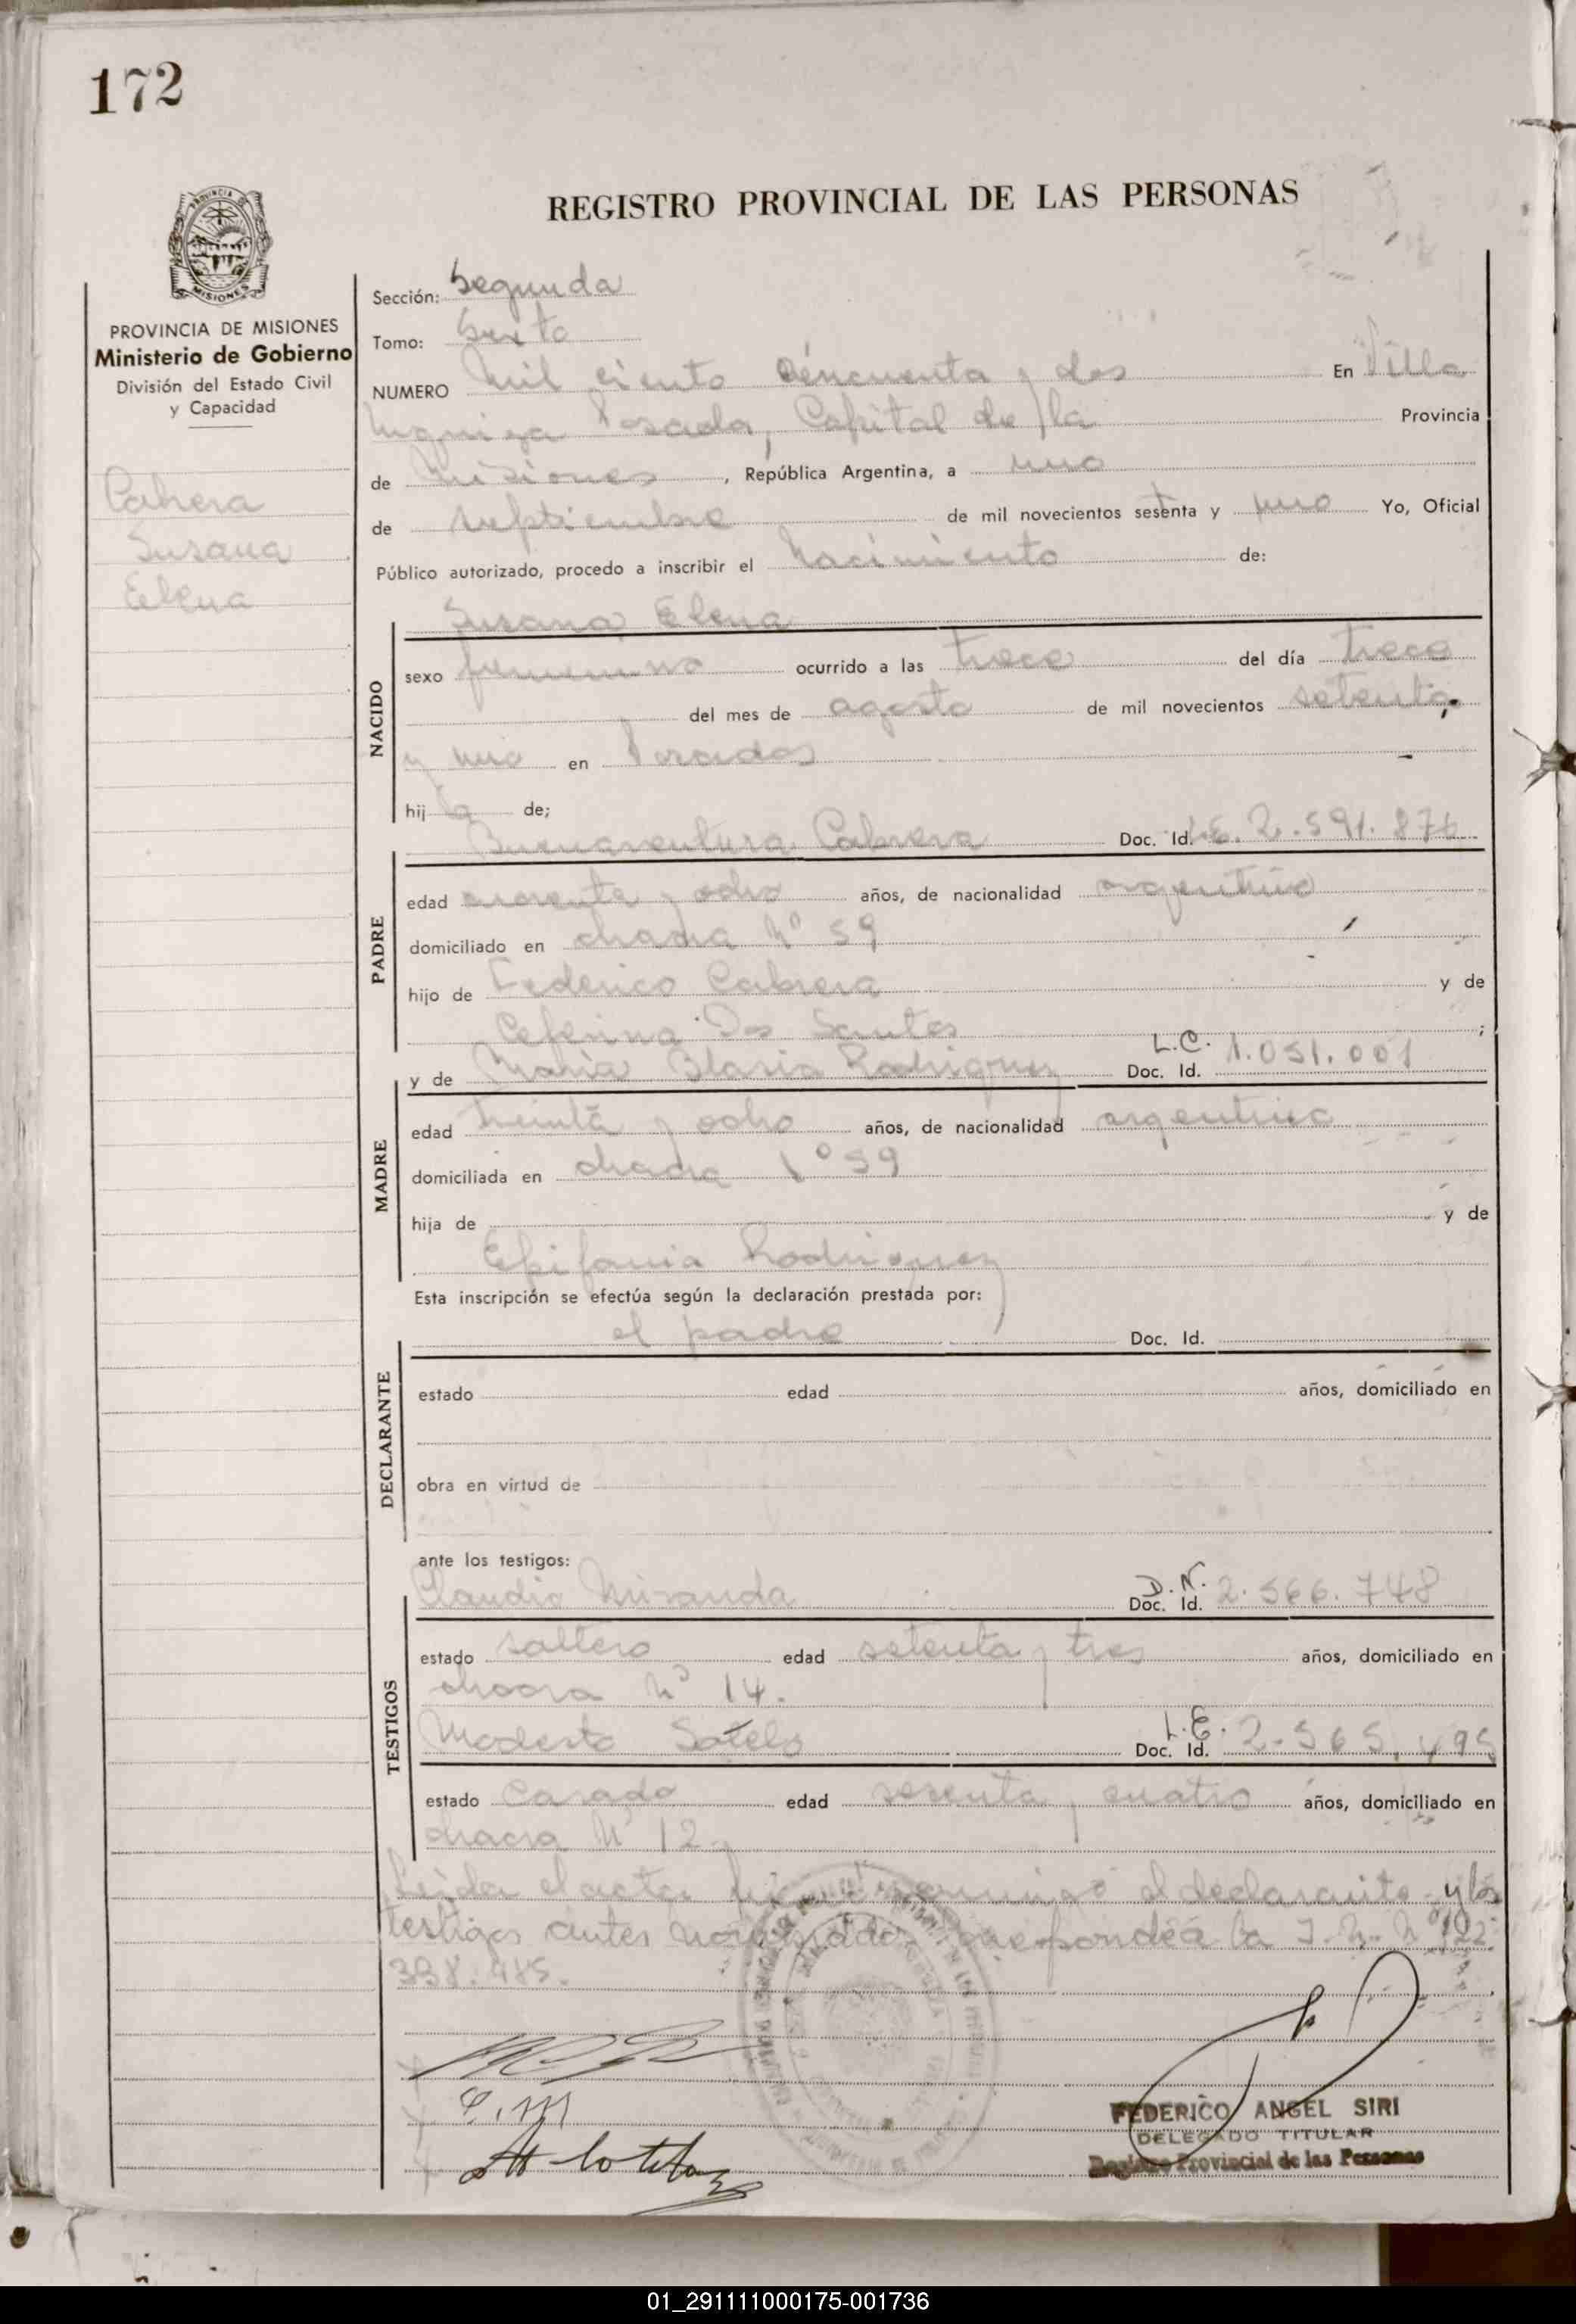 172
REGISTRO PROVINCIAL DE LAS PERSONAS
PROVINCIA
MISIONES
PROVINCIA DE MISIONES
Ministerio de Gobierno
División del Estado Civil
y Capacidad
Cabrera
Susana
Elena
Sección: Segunda
Tomo: Sexto
NUMERO Mil ciento cincuenta y dos En Villa
Urquiza Posadas, Capital de la Provincia
de Misiones, República Argentina, a uno
de septiembre de mil novecientos sesenta y uno Yo, Oficial
Público autorizado, procedo a inscribir el Nacimiento de:
Susana Elena
NACIDO
sexo femenino ocurrido a las trece del día trece
del mes de agosto de mil novecientos setenta
y uno en Posadas
hij a de;
Buenaventura Cabrera Doc. Id. L.E. 2.591.876
PADRE
edad cuarenta y ocho años, de nacionalidad argentino
domiciliado en chacra Nº 59
hijo de Federico Cabrera y de
Ceferina Dos Santos;
y de Maria Blasia Rodriguez Doc. Id. L.C. 1.051.001
MADRE
edad treinta y ocho años, de nacionalidad argentina
domiciliada en chacra º 59
hija de y de
Epifania Rodriguez
Esta inscripción se efectúa según la declaración prestada por:
el padre Doc. Id.
DECLARANTE
estado edad años, domiciliado en
obra en virtud de
ante los testigos:
Claudio Miranda Doc. Id. D.N. 2.566.748
TESTIGOS
estado soltero edad setenta y tres años, domiciliado en
chacra Nº 14.
Modesto Sotelo Doc. Id. L.E. 2.565.495
estado Casado edad sesenta y cuatro años, domiciliado en
chacra Nº 12.
Leida el acta el declarante y los
testigos antes nombrados corresponde a la I. N. Nº 22.
398.485.
C. M
FEDERICO ANGEL SIRI
DELEGADO TITULAR
Registro Provincial de las Personas
01_291111000175-001736